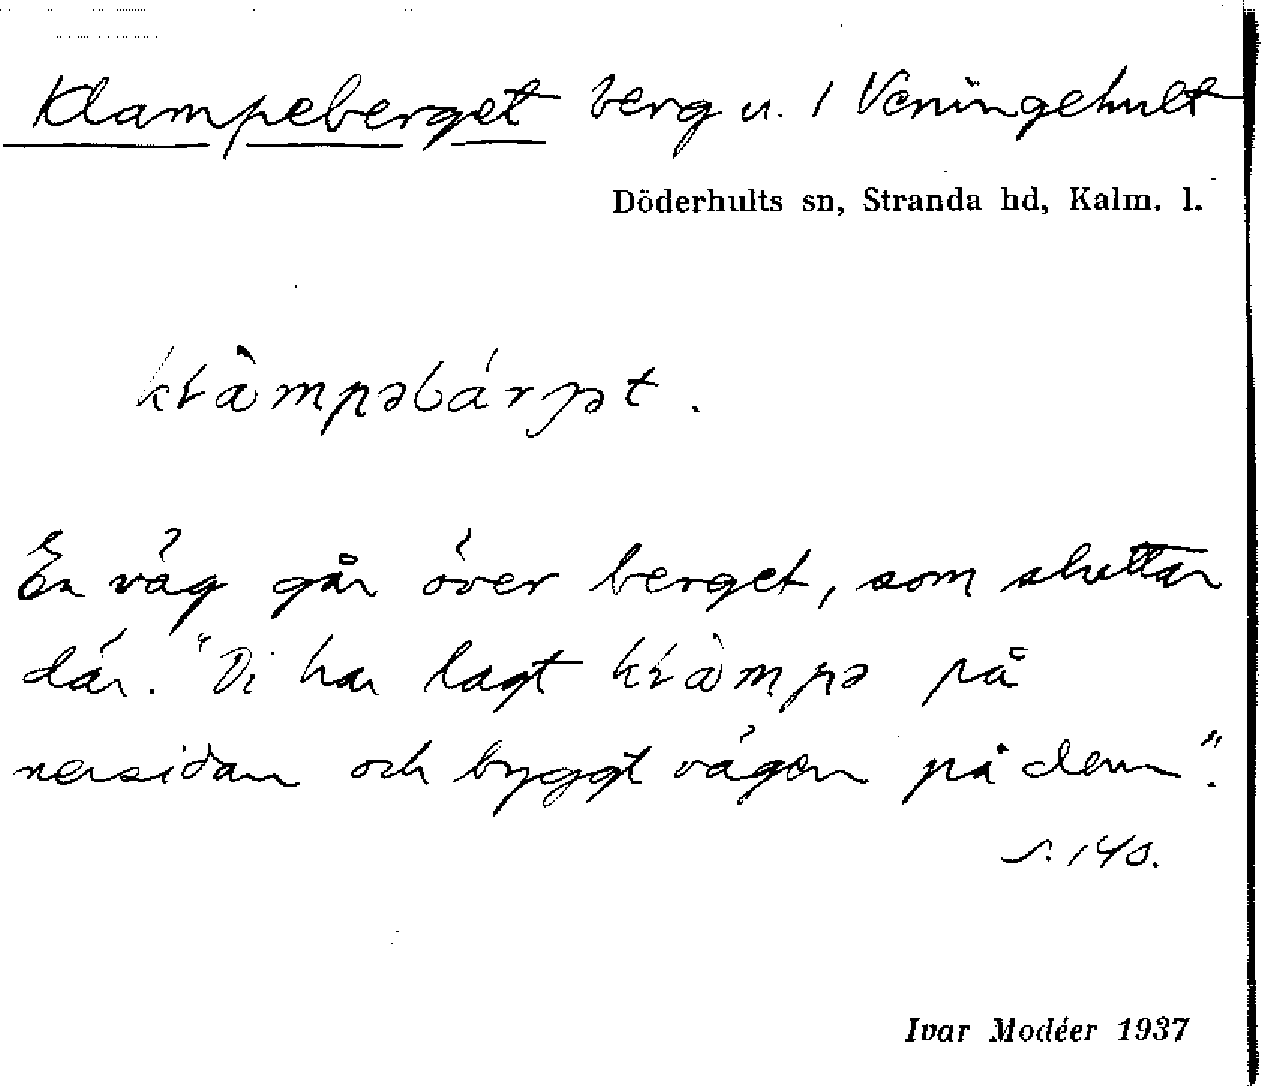 Klampeberget berg u. 1 Väningehult
Döderhults sn, Stranda hd, Kalm. l.
kɫàmpəbárjət.
En väg går över berget, som sluttar
där. "Di har lagt kɫàmpə på
nersidan och byggt vägen på dem".
s. 140.
Ivar Modéer 1937